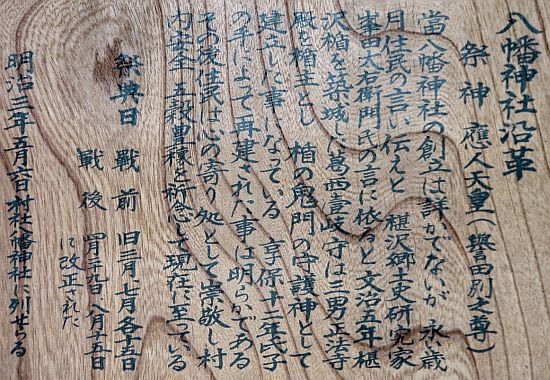 八幡神社沿革
祭神 應人天皇(譽田別之尊)
當八幡神社の創立は詳かでないが 永歳
月住民の言い伝えと 椹沢郷土史研究家
峯田太右衛門氏の言に依ると 文治五年椹
沢楯を築城した葛西壹岐守は三男正法寺
殿を楯主とし 楯の鬼門の守護神として
建立した事になっている 享保十二年氏子
の手によって再建された事は明らかである
その後住民は心の寄り処として崇敬し村
内安全 五穀豊穣を祈念して現在に至っている
祭典日 戰前 旧三月七月各十五日
戰後 四月十五日 八月十五日
に改正された
明治三年五月六日村社八幡神社に列せらる